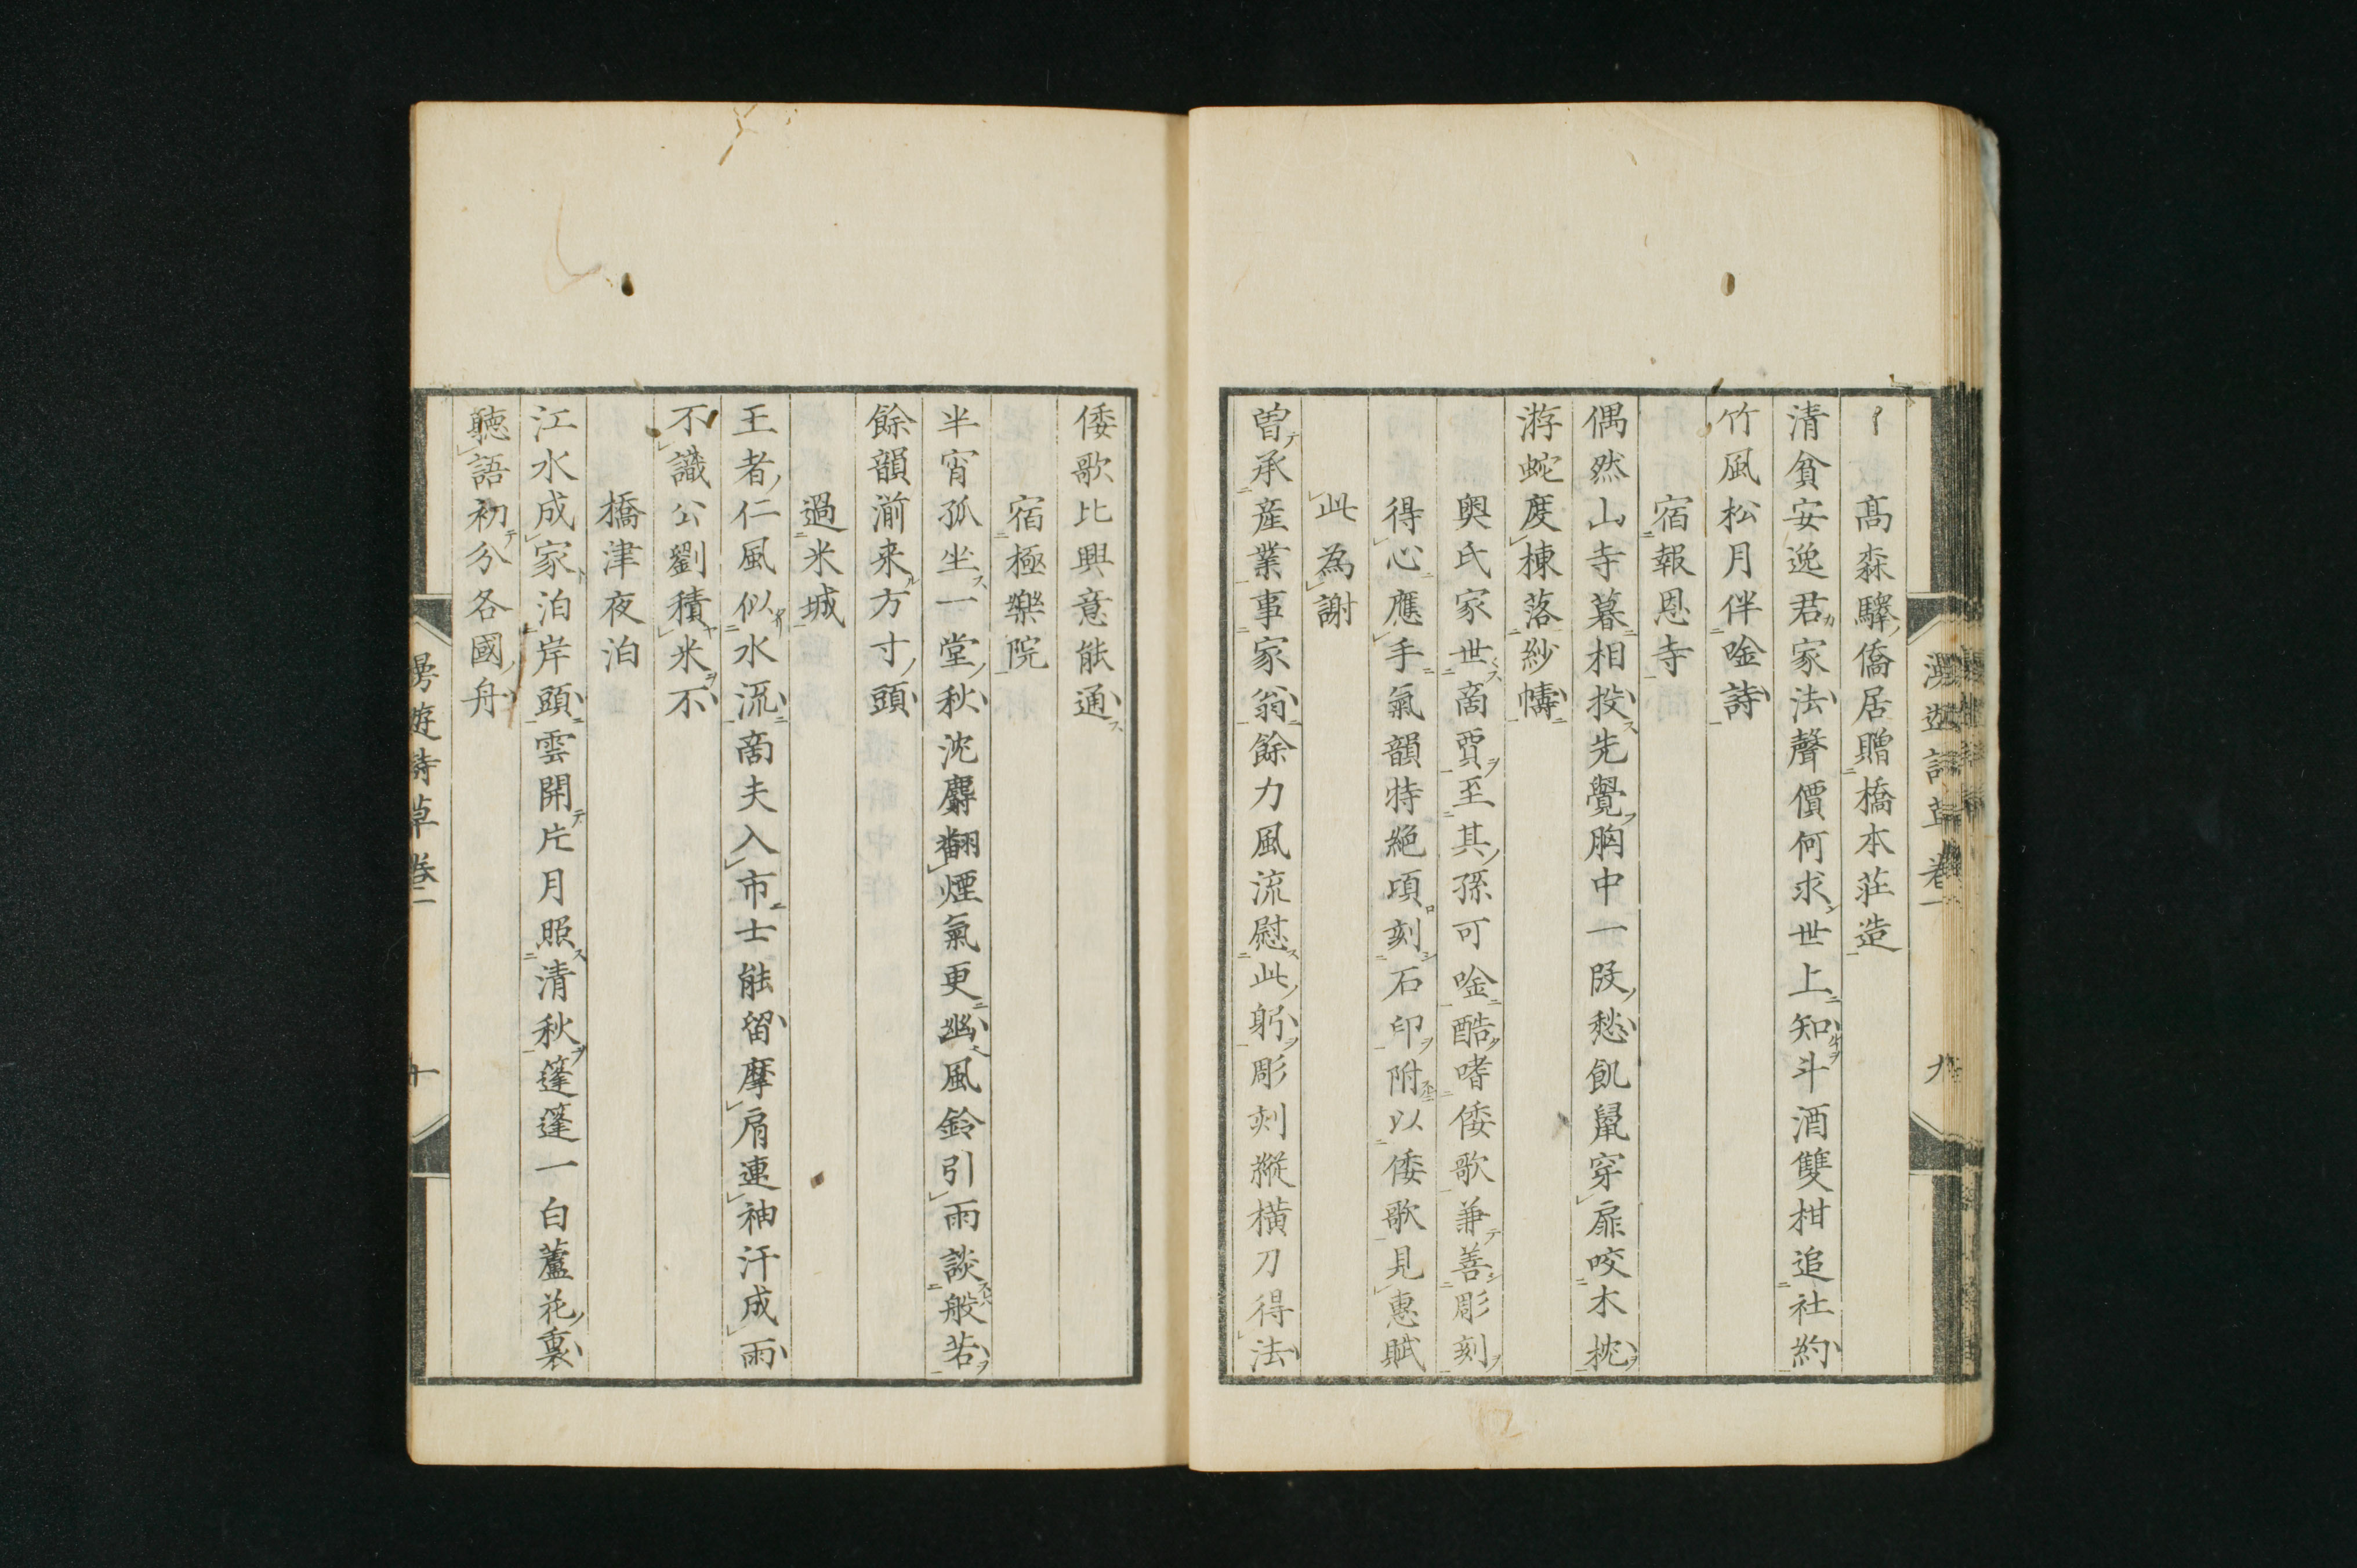 髙森驛僑居贈橋本莊造
清貧安逸君家法聲價何求世上知斗酒雙柑追社約
竹風松月伴唫詩
宿報恩寺
偶然山寺暮相投先覺胸中一段愁飢鼠穿扉咬木枕
游蛇度棟落紗幬
奥氏家世商賈至其孫可唫酷嗜倭歌兼善彫刻
得心應手氣韻特絕頃刻石印附以倭歌見惠賦
此為謝
曽承産業事家翁餘力風流慰此躬彫刻縱横刀得法
倭歌比興意能通
宿極樂院
半宵孤坐一堂秋沈麝翻煙氣更幽風鈴引雨談般若
餘韻湔来方寸頭
過米城
王者仁風似水流商夫入市士能留摩肩連袖汗成雨
不識公劉積米不
橋津夜泊
江水成家泊岸頭雲開片月照清秋篷篷一白蘆花裏
聽語初分各國舟
漫遊詩草卷一 九
漫遊詩草卷一 十